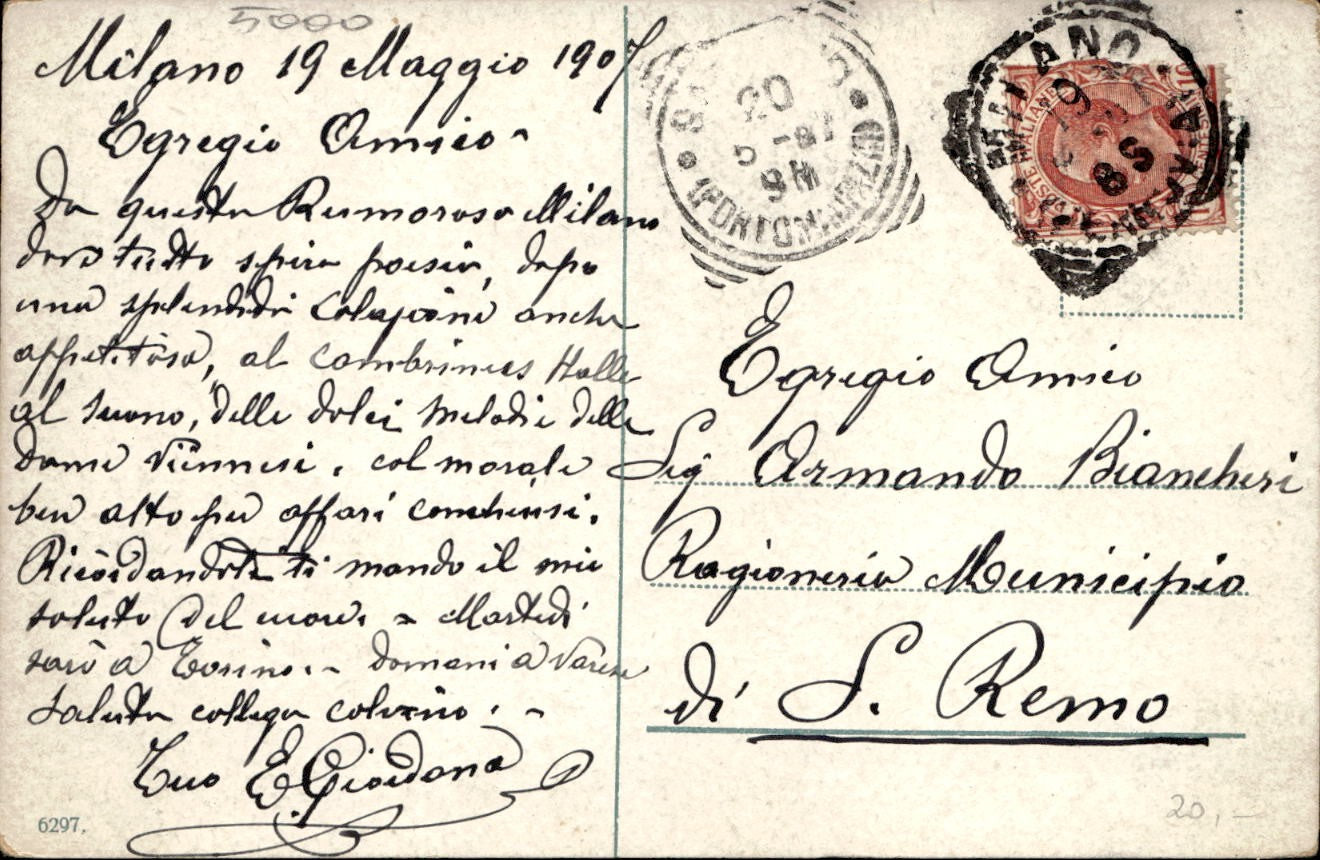 5000
Milano 19 Maggio 1907
Egregio Amico -
Da questa Rumorosa Milano
dove tutto spira poesia, dopo
una splendida colazione anche
appetitosa, al Cambrinus Halle
al suono, delle dolci melodie delle
dame Viennesi. col morale
ben alto per affari conchiusi.
ti mando il mio
saluto del cuore. - Martedì
sarò a Torino. - domani a Varese
Saluta collega Calvino. -
Tuo E. Giordana
6297.
20
9M
PORTO MAURIZIO
MILANO
19
8S
POSTE ITALIANE
Egregio Amico
Sig Armando Biancheri
Ragioneria Municipio
di S. Remo
20,-